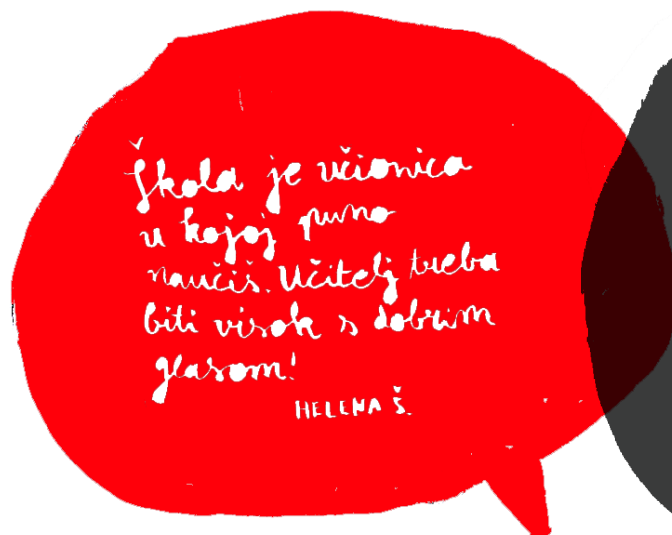 Škola je učionica
u kojoj puno
naučiš. Učitelj treba
biti visok s dobrim
glasom!
HELENA Š.